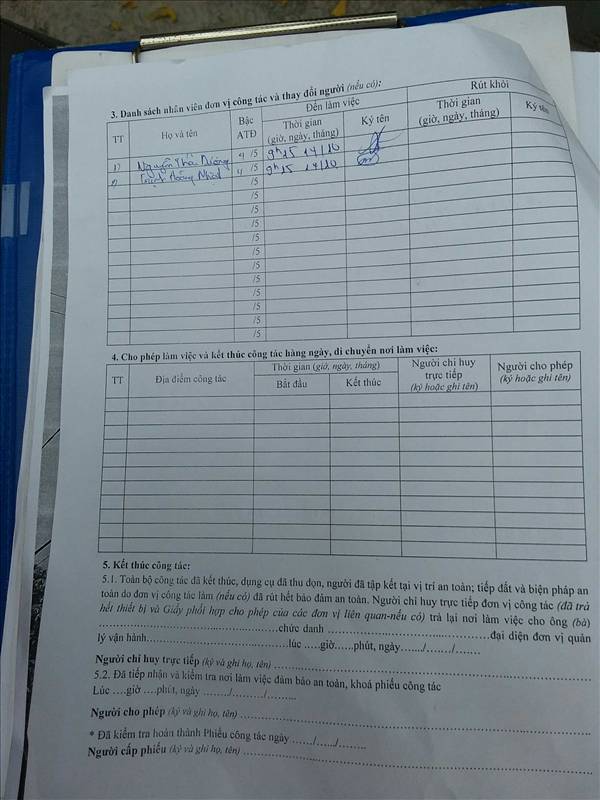 3. Danh sách nhân viên đơn vị công tác và thay đổi người (nếu có):
TT Họ và tên Bậc ATĐ Đến làm việc Rút khỏi
Thời gian (giờ, ngày, tháng) Ký tên Thời gian (giờ, ngày, tháng) Ký tên
1) Nguyễn Thái Dương 4 /5 9h15 14/10
2) Hoàng 4 /5 9h15 14/10
/5
/5
/5
/5
/5
/5
/5
/5
/5
/5
/5
/5
4. Cho phép làm việc và kết thúc công tác hàng ngày, di chuyển nơi làm việc:
TT Địa điểm công tác Thời gian (giờ, ngày, tháng) Người chỉ huy trực tiếp (ký hoặc ghi tên) Người cho phép (ký hoặc ghi tên)
Bắt đầu Kết thúc
5. Kết thúc công tác:
5.1. Toàn bộ công tác đã kết thúc, dụng cụ đã thu dọn, người đã tập kết tại vị trí an toàn; tiếp đất và biện pháp an
toàn do đơn vị công tác làm (nếu có) đã rút hết bảo đảm an toàn. Người chỉ huy trực tiếp đơn vị công tác (đã trả
hết thiết bị và Giấy phối hợp cho phép của các đơn vị liên quan-nếu có) trả lại nơi làm việc cho ông (bà)
……………………………chức danh ……………………………đại diện đơn vị quản
lý vận hành……………………………lúc …..giờ……phút, ngày……./……./…….
Người chỉ huy trực tiếp (ký và ghi họ, tên) ……………………………
5.2. Đã tiếp nhận và kiểm tra nơi làm việc đảm bảo an toàn, khoá phiếu công tác
Lúc ….giờ ….phút, ngày ……../………/……..
Người cho phép (ký và ghi họ, tên) ……………………………
* Đã kiểm tra hoàn thành Phiếu công tác ngày ……/……/……..
Người cấp phiếu (ký và ghi họ, tên) ……………………………